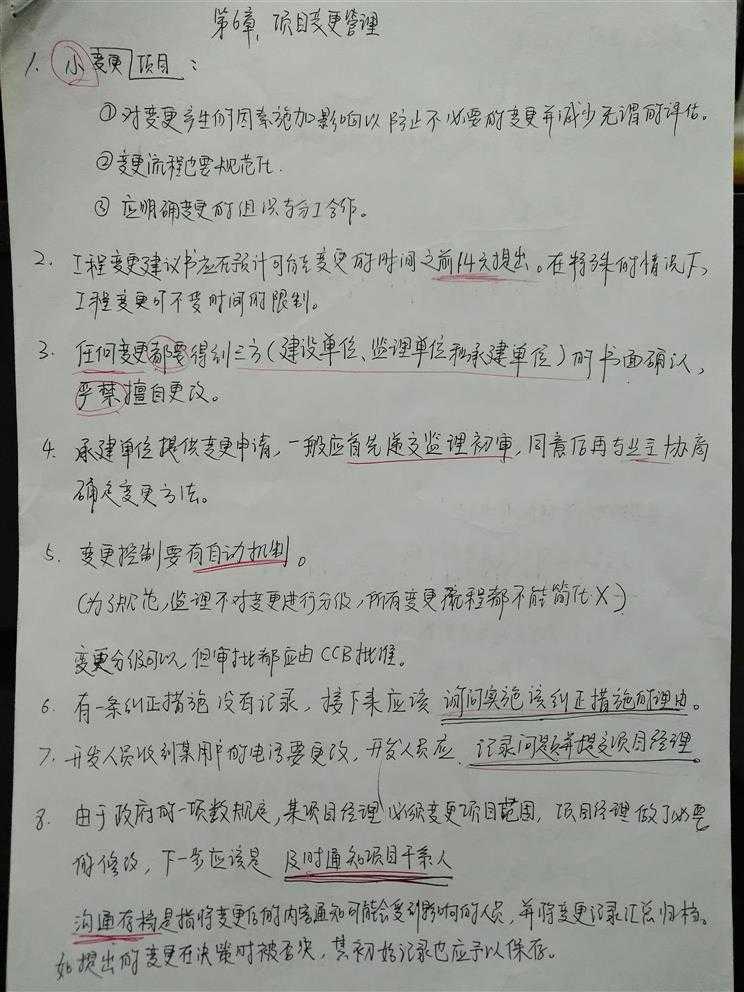 第6章，项目变更管理
1. 小变更项目：
①对变更产生的因素施加影响以防止不必要的变更并减少无谓的评估。
②变更流程也要规范化.
③ 应明确变更的组织与分工合作。
2. 工程变更建议书应在预计可能变更的时间之前14天提出。在特殊的情况下，
工程变更可不受时间的限制。
3. 任何变更都要得到三方（建设单位、监理单位和承建单位）的书面确认，
严禁擅自更改。
4. 承建单位提供变更申请，一般应首先递交监理初审，同意后再与业主协商
确定变更方法。
5. 变更控制要有自动机制。
（为了规范，监理不对变更进行分级，所有变更流程都不能简化 X）
变更分级可以，但审批都应由CCB批准。
6. 有一条纠正措施没有记录，接下来应该 询问实施该纠正措施的理由。
7. 开发人员收到某用户的电话要更改，开发人员应 记录问题并提交项目经理。
8. 由于政府的一项数规定，某项目经理必须变更项目范围，项目经理做了必要
的修改，下一步应该是 及时通知项目干系人
沟通存档是指将变更后的内容通知可能会受到影响的人员，并将变更记录汇总归档。
如提出的变更在决策时被否决，其初始记录也应予以保存。